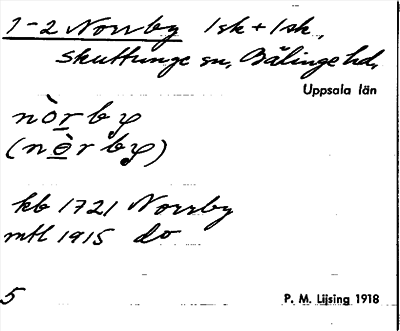 1-2 Norrby 1sk + 1sk,
Skuttunge sn, Bälinge hd,
Uppsala län
nòrby
(nèrby)
kb 1721 Norrby
mtl 1915 do
5
P. M. Lijsing 1918